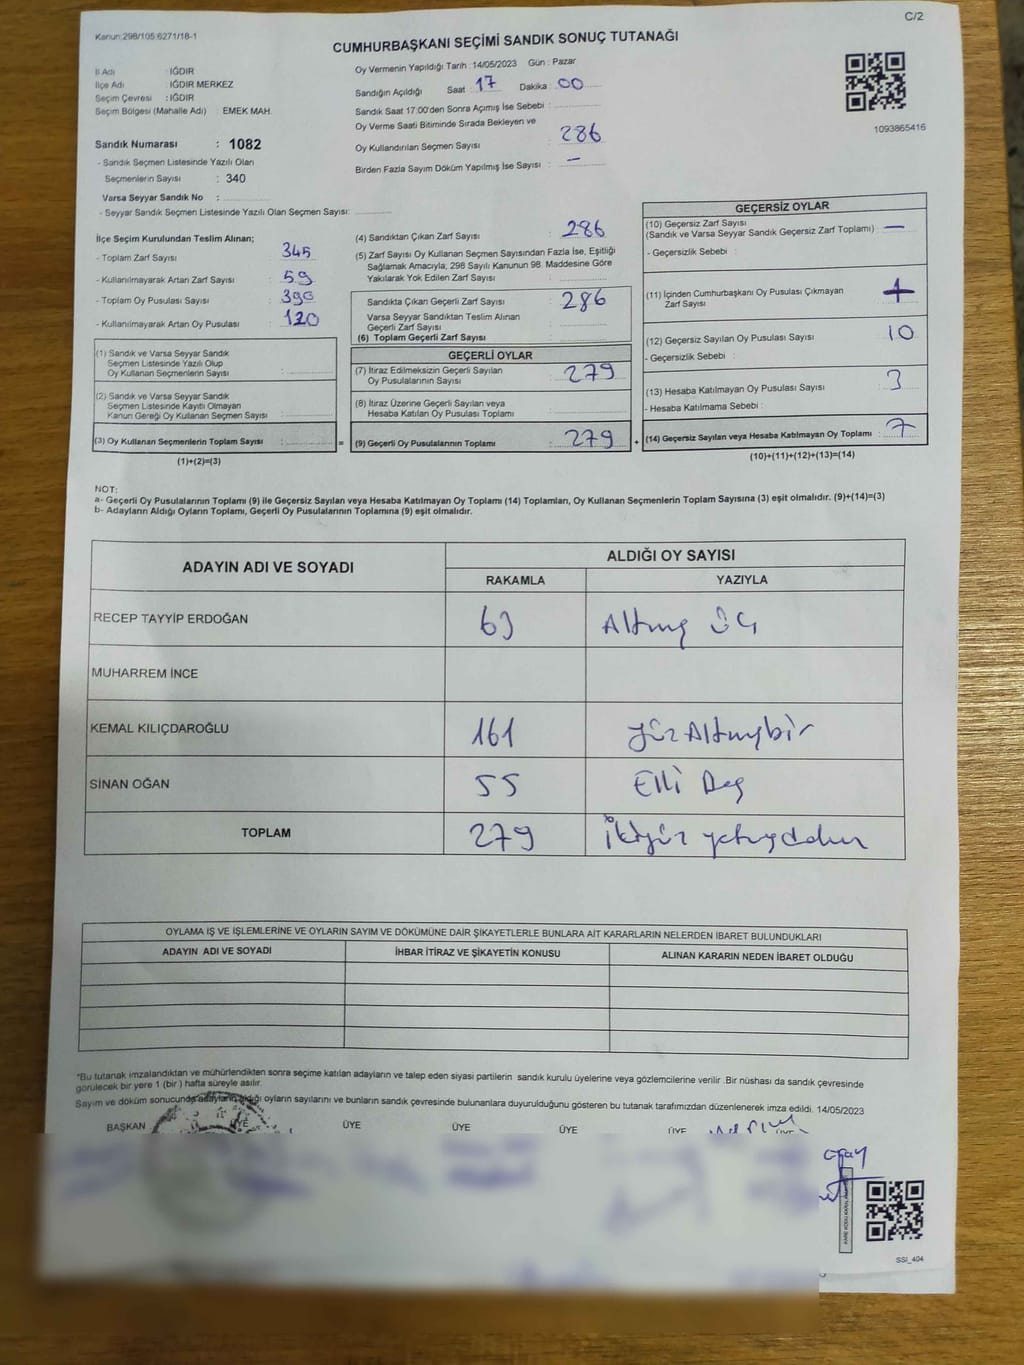 C/2
Kanun:298/105:6271/18-1
CUMHURBAŞKANI SEÇİMİ SANDIK SONUÇ TUTANAĞI
İl Adı : IĞDIR
İlçe Adı : IĞDIR MERKEZ
Seçim Çevresi : IĞDIR
Seçim Bölgesi (Mahalle Adı) : EMEK MAH.
Sandık Numarası : 1082
- Sandık Seçmen Listesinde Yazılı Olan
Seçmenlerin Sayısı : 340
Varsa Seyyar Sandık No :
- Seyyar Sandık Seçmen Listesinde Yazılı Olan Seçmen Sayısı:
Oy Vermenin Yapıldığı Tarih : 14/05/2023 Gün : Pazar
Sandığın Açıldığı Saat : 17 Dakika : 00
Sandık Saat 17:00'den Sonra Açımış İse Sebebi :
Oy Verme Saati Bitiminde Sırada Bekleyen ve
Oy Kullandırılan Seçmen Sayısı : 286
Birden Fazla Sayım Döküm Yapılmış İse Sayısı : —
1093865416
İlçe Seçim Kurulundan Teslim Alınan;
- Toplam Zarf Sayısı : 345
- Kullanılmayarak Artan Zarf Sayısı : 59
- Toplam Oy Pusulası Sayısı : 390
- Kullanılmayarak Artan Oy Pusulası : 120
(1) Sandık ve Varsa Seyyar Sandık
Seçmen Listesinde Yazılı Olup
Oy Kullanan Seçmenlerin Sayısı :
(2) Sandık ve Varsa Seyyar Sandık
Seçmen Listesinde Kayıtlı Olmayan
Kanun Gereği Oy Kullanan Seçmen Sayısı :
(3) Oy Kullanan Seçmenlerin Toplam Sayısı :
(1)+(2)=(3)
(4) Sandıktan Çıkan Zarf Sayısı : 286
(5) Zarf Sayısı Oy Kullanan Seçmen Sayısından Fazla İse, Eşitliği
Sağlamak Amacıyla, 298 Sayılı Kanunun 98. Maddesine Göre
Yakılarak Yok Edilen Zarf Sayısı :
Sandıkta Çıkan Geçerli Zarf Sayısı : 286
Varsa Seyyar Sandıktan Teslim Alınan
Geçerli Zarf Sayısı :
(6) Toplam Geçerli Zarf Sayısı :
GEÇERLİ OYLAR
(7) İtiraz Edilmeksizin Geçerli Sayılan
Oy Pusulalarının Sayısı : 279
(8) İtiraz Üzerine Geçerli Sayılan veya
Hesaba Katılan Oy Pusulası Toplamı :
= (9) Geçerli Oy Pusulalarının Toplamı : 279 +
GEÇERSİZ OYLAR
(10) Geçersiz Zarf Sayısı
(Sandık ve Varsa Seyyar Sandık Geçersiz Zarf Toplamı) : —
- Geçersizlik Sebebi :
(11) İçinden Cumhurbaşkanı Oy Pusulası Çıkmayan
Zarf Sayısı :
(12) Geçersiz Sayılan Oy Pusulası Sayısı : 10
- Geçersizlik Sebebi :
(13) Hesaba Katılmayan Oy Pusulası Sayısı : 3
- Hesaba Katılmama Sebebi :
(14) Geçersiz Sayılan veya Hesaba Katılmayan Oy Toplamı : 7
(10)+(11)+(12)+(13)=(14)
NOT:
a- Geçerli Oy Pusulalarının Toplamı (9) ile Geçersiz Sayılan veya Hesaba Katılmayan Oy Toplamı (14) Toplamları, Oy Kullanan Seçmenlerin Toplam Sayısına (3) eşit olmalıdır. (9)+(14)=(3)
b- Adayların Aldığı Oyların Toplamı, Geçerli Oy Pusulalarının Toplamına (9) eşit olmalıdır.
ADAYIN ADI VE SOYADI ALDIĞI OY SAYISI
RAKAMLA YAZIYLA
RECEP TAYYİP ERDOĞAN 63 Altmış üç
MUHARREM İNCE
KEMAL KILIÇDAROĞLU 161 Yüz Altmışbir
SİNAN OĞAN 55 Elli Beş
TOPLAM 279 İkiyüz yetmişdokuz
OYLAMA İŞ VE İŞLEMLERİNE VE OYLARIN SAYIM VE DÖKÜMÜNE DAİR ŞİKAYETLERLE BUNLARA AİT KARARLARIN NELERDEN İBARET BULUNDUKLARI
ADAYIN ADI VE SOYADI İHBAR İTİRAZ VE ŞİKAYETİN KONUSU ALINAN KARARIN NEDEN İBARET OLDUĞU
*Bu tutanak imzalandıktan ve mühürlendikten sonra seçime katılan adayların ve talep eden siyasi partilerin sandık kurulu üyelerine veya gözlemcilerine verilir .Bir nüshası da sandık çevresinde
görülecek bir yere 1 (bir ) hafta süreyle asılır.
Sayım ve döküm sonucunda adayların aldığı oyların sayılarını ve bunların sandık çevresinde bulunanlara duyurulduğunu gösteren bu tutanak tarafımızdan düzenlenerek imza edildi. 14/05/2023
BAŞKAN ÜYE ÜYE ÜYE ÜYE ÜYE ÜYE
SSI_404